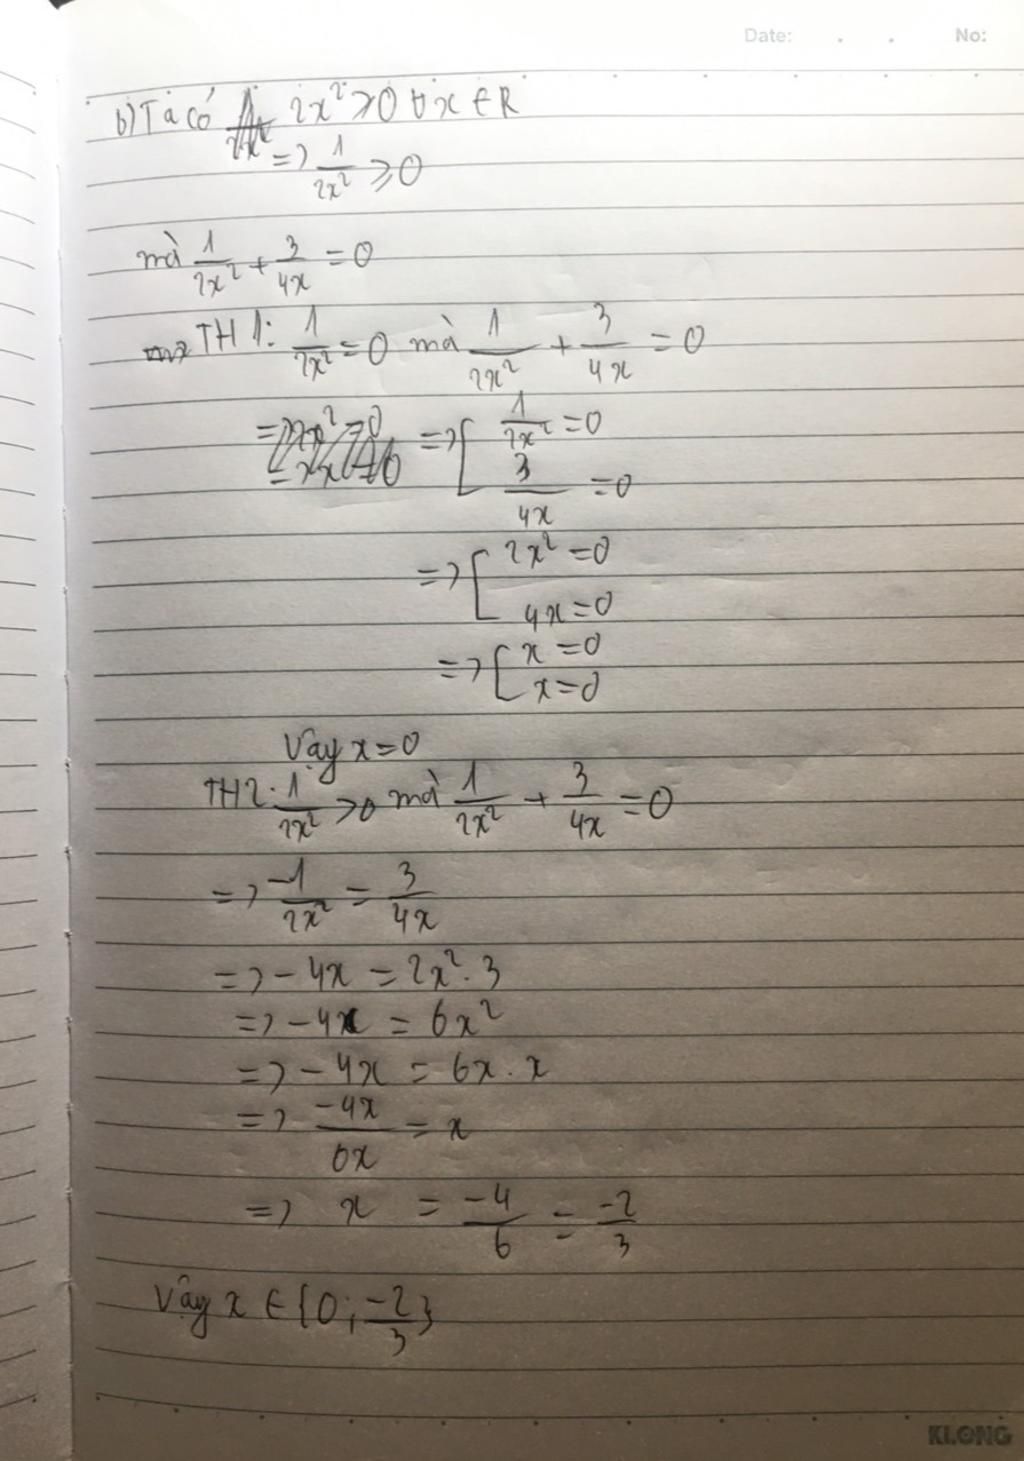 Date: . . No:
b) Ta có 2x² ≥ 0 ∀x ∈ R
=> 1/2x² ≥ 0
mà 1/2x² + 3/4x = 0
TH1: 1/2x² = 0 mà 1/2x² + 3/4x = 0
=> [ 1/2x² = 0
3/4x = 0
=> [ 2x² = 0
4x = 0
=> [ x = 0
x = 0
Vậy x = 0
TH2: 1/2x² > 0 mà 1/2x² + 3/4x = 0
=> -1/2x² = 3/4x
=> -4x = 2x² . 3
=> -4x = 6x²
=> -4x = 6x . x
=> -4x/6x = x
=> x = -4/6 = -2/3
Vậy x ∈ {0; -2/3}
KLONG